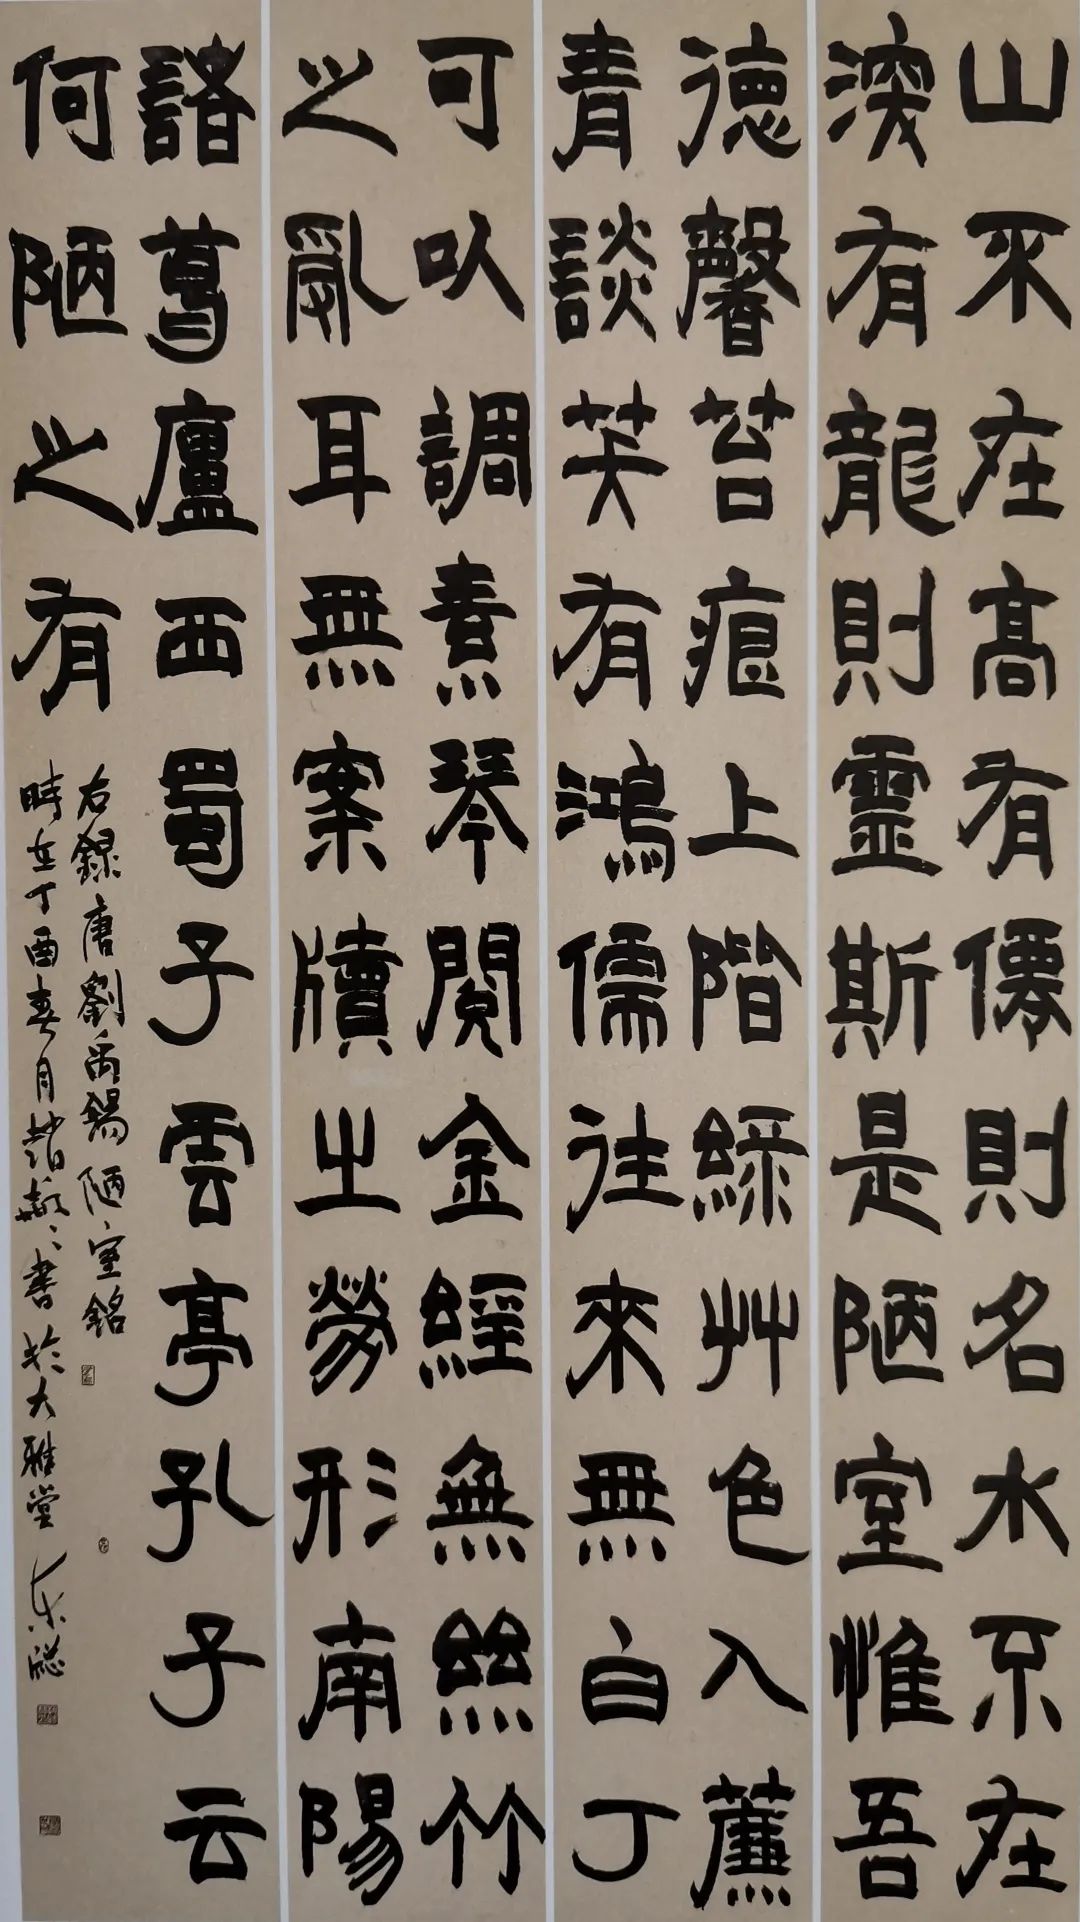 山不在高有僊則名水不在
深有龍則靈斯是陋室惟吾
德馨苔痕上階綠艸色入薕
青談关有鴻儒往來無白丁
可以調素琴閱金經無絲竹
之亂耳無案牘之勞形南陽
諸葛廬西蜀子雲亭孔子云
何陋之有
右錄唐劉禹錫陋室銘
時在丁酉春月 書於大雅堂